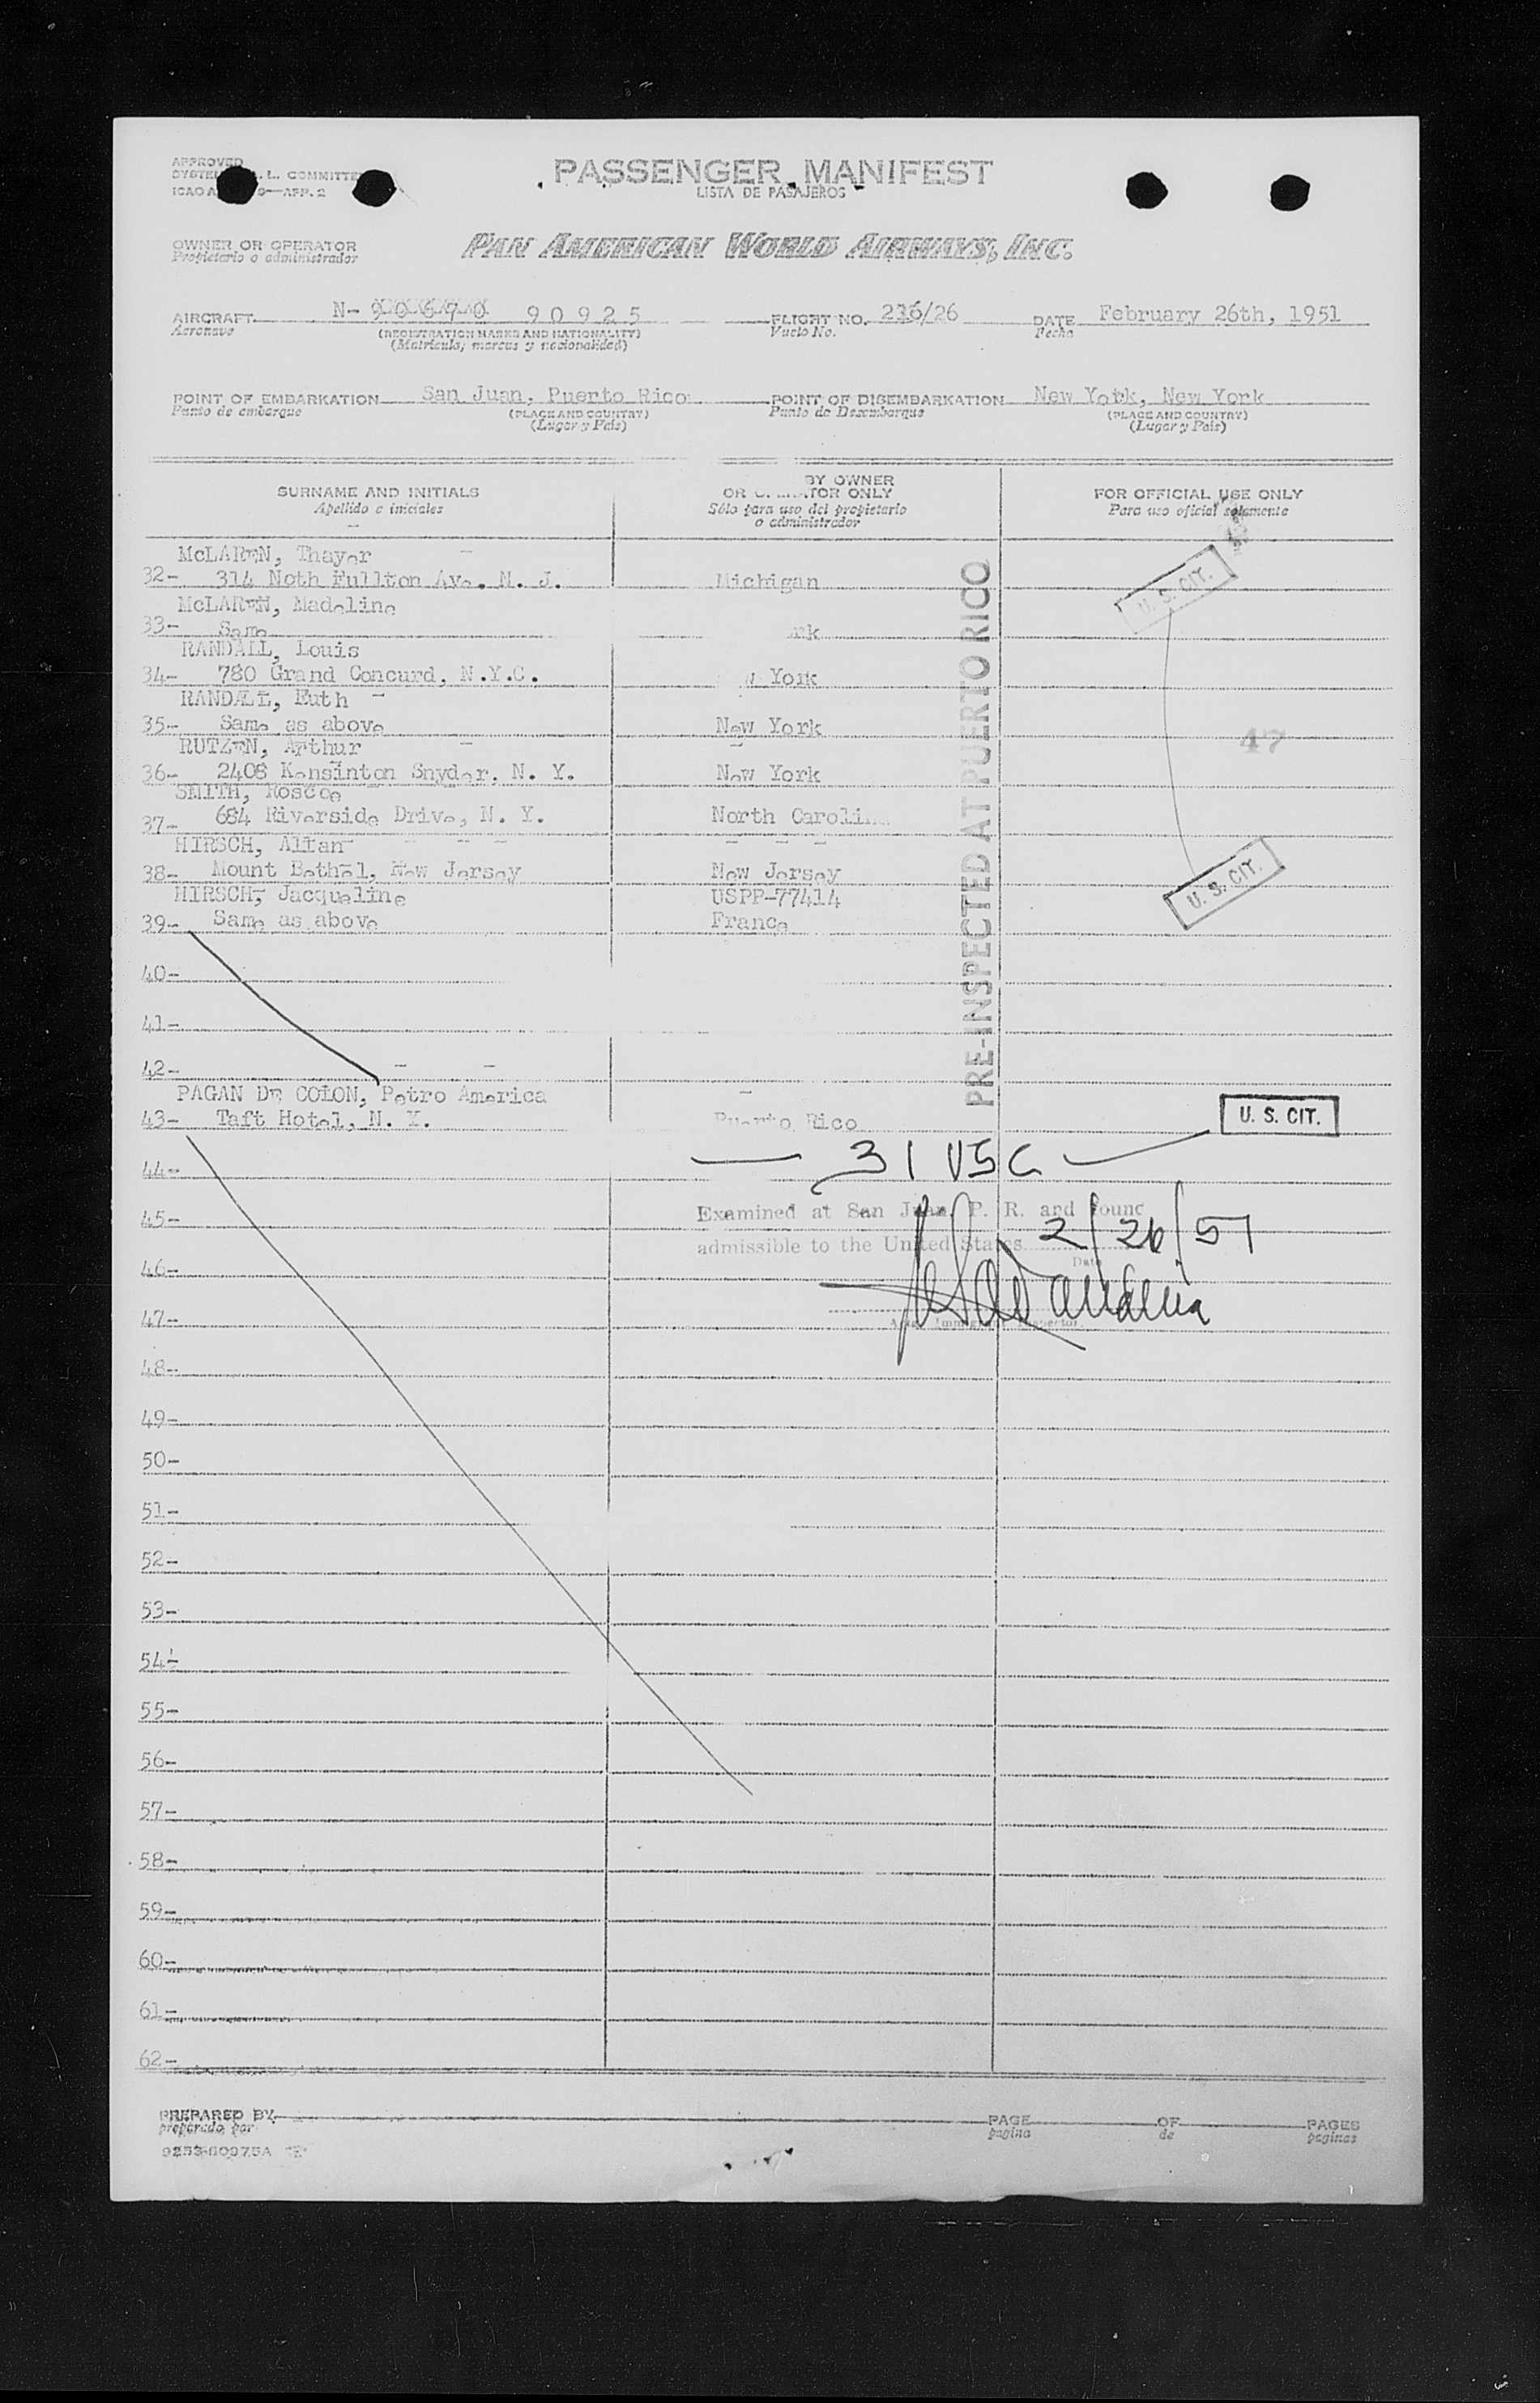 APPROVED
L. COMMITTE
APP. 2
PASSENGER MANIFEST
LISTA DE PASAJEROS
OWNER OR OPERATOR
Propietario o administrador
PAN AMERICAN WORLD AIRWAYS, INC.
AIRCRAFT N-90670 90925 FLIGHT NO. 236/26 DATE February 26th, 1951
Aeronave (REGISTRATION MARKS AND NATIONALITY) Vuelo No. Fecha
(Matricula, marcas y nacionalidad)
POINT OF EMBARKATION San Juan, Puerto Rico POINT OF DISEMBARKATION New York, New York
Punto de embarque (PLACE AND COUNTRY) Punto de Desembarque (PLACE AND COUNTRY)
(Lugar y Pais) (Lugar y Pais)
SURNAME AND INITIALS BY OWNER FOR OFFICIAL USE ONLY
OR ONLY
Apellido e iniciales Sólo para uso del propietario Para uso oficial solamente
o administrador
McLAREN, Thayer
32- 314 Noth Fullton Ave. N. J. Michigan U. S. CIT.
McLAREN, Madeline
33- Same
RANDALL, Louis
34- 780 Grand Concurd, N.Y.C. York
RANDALL, Euth
35- Same as above New York
47
RUTZEN, Arthur
36- 2408 Kensinton Snyder, N. Y. New York
SMITH, Roscoe
37- 684 Riverside Drive, N. Y. North Carolin
HIRSCH, Allan
38- Mount Bethel, New Jersey New Jersey U. S. CIT.
HIRSCH, Jacqueline USPP-77414
39- Same as above France
PRE-INSPECTED AT PUERTO RICO
40-
41-
42-
PAGAN DE COLON, Petro America
43- Taft Hotel, N. Y. Puerto Rico U. S. CIT.
44- 31 USC
45- Examined at San Juan, P. R. and found
admissible to the United States 2/26/51
Date
46-
47-
Immigrant Inspector
48-
49-
50-
51-
52-
53-
54-
55-
56-
57-
58-
59-
60-
61-
62-
PREPARED BY PAGE OF PAGES
preparado por pagina de paginas